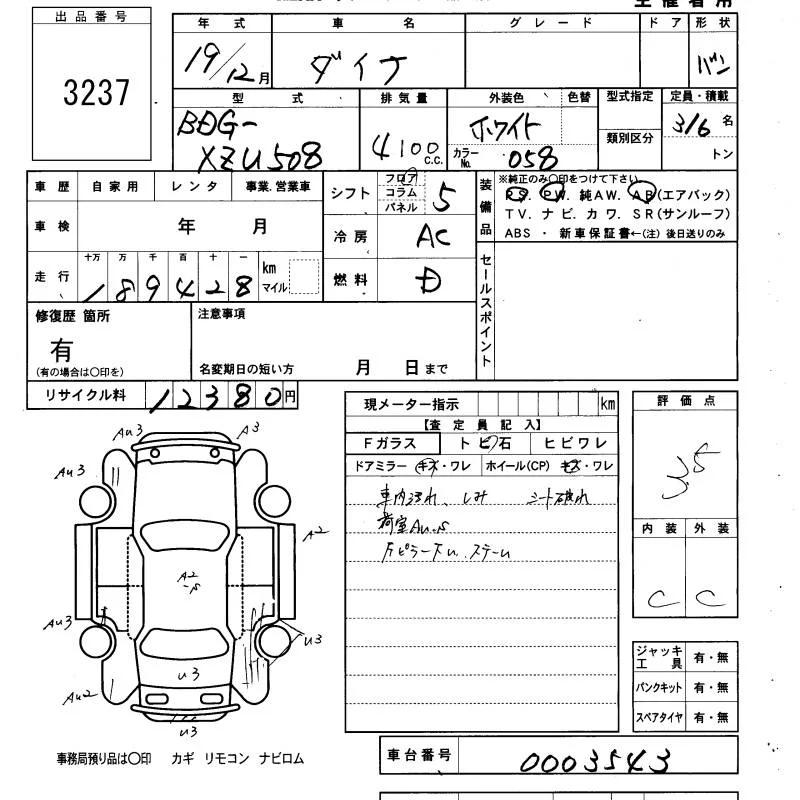 主催者用
出品番号
3237
年式 車名 グレード ドア 形状
19/12月 ダイナ バン
型式 排気量 外装色 色替 型式指定 定員・積載
BDG-
XZU508
4100 c.c.
ホワイト
カラーNo. 058
類別区分
3/6 名
トン
車歴 自家用 レンタ 事業.営業車
シフト フロア コラム パネル 5
装備品
※純正のみ〇印をつけて下さい。
PS. PW. 純AW. AB(エアバック)
TV. ナビ. カワ. SR(サンルーフ)
ABS ・ 新車保証書←(注) 後日送りのみ
車検 年 月
冷房 AC
走行 十万 万 千 百 十 一
189428 km マイル
燃料 D
セールスポイント
修復歴 箇所
有
(有の場合は〇印を)
注意事項
名変期日の短い方 月 日まで
リサイクル料 12380円
現メーター指示 km
【査定員記入】
Fガラス トビ石 ヒビワレ
ドアミラー キズ・ワレ ホイール(CP) キズ・ワレ
車内汚れ、しみ シート破れ
荷室Au.S
評価点
3.5
内装 外装
C C
Au3 A3
Au3
A2
A2
-S
Au3
U3
U3
Au2
U3
ジャッキ工具 有・無
パンクキット 有・無
スペアタイヤ 有・無
事務局預り品は〇印 カギ リモコン ナビロム
車台番号 0003543